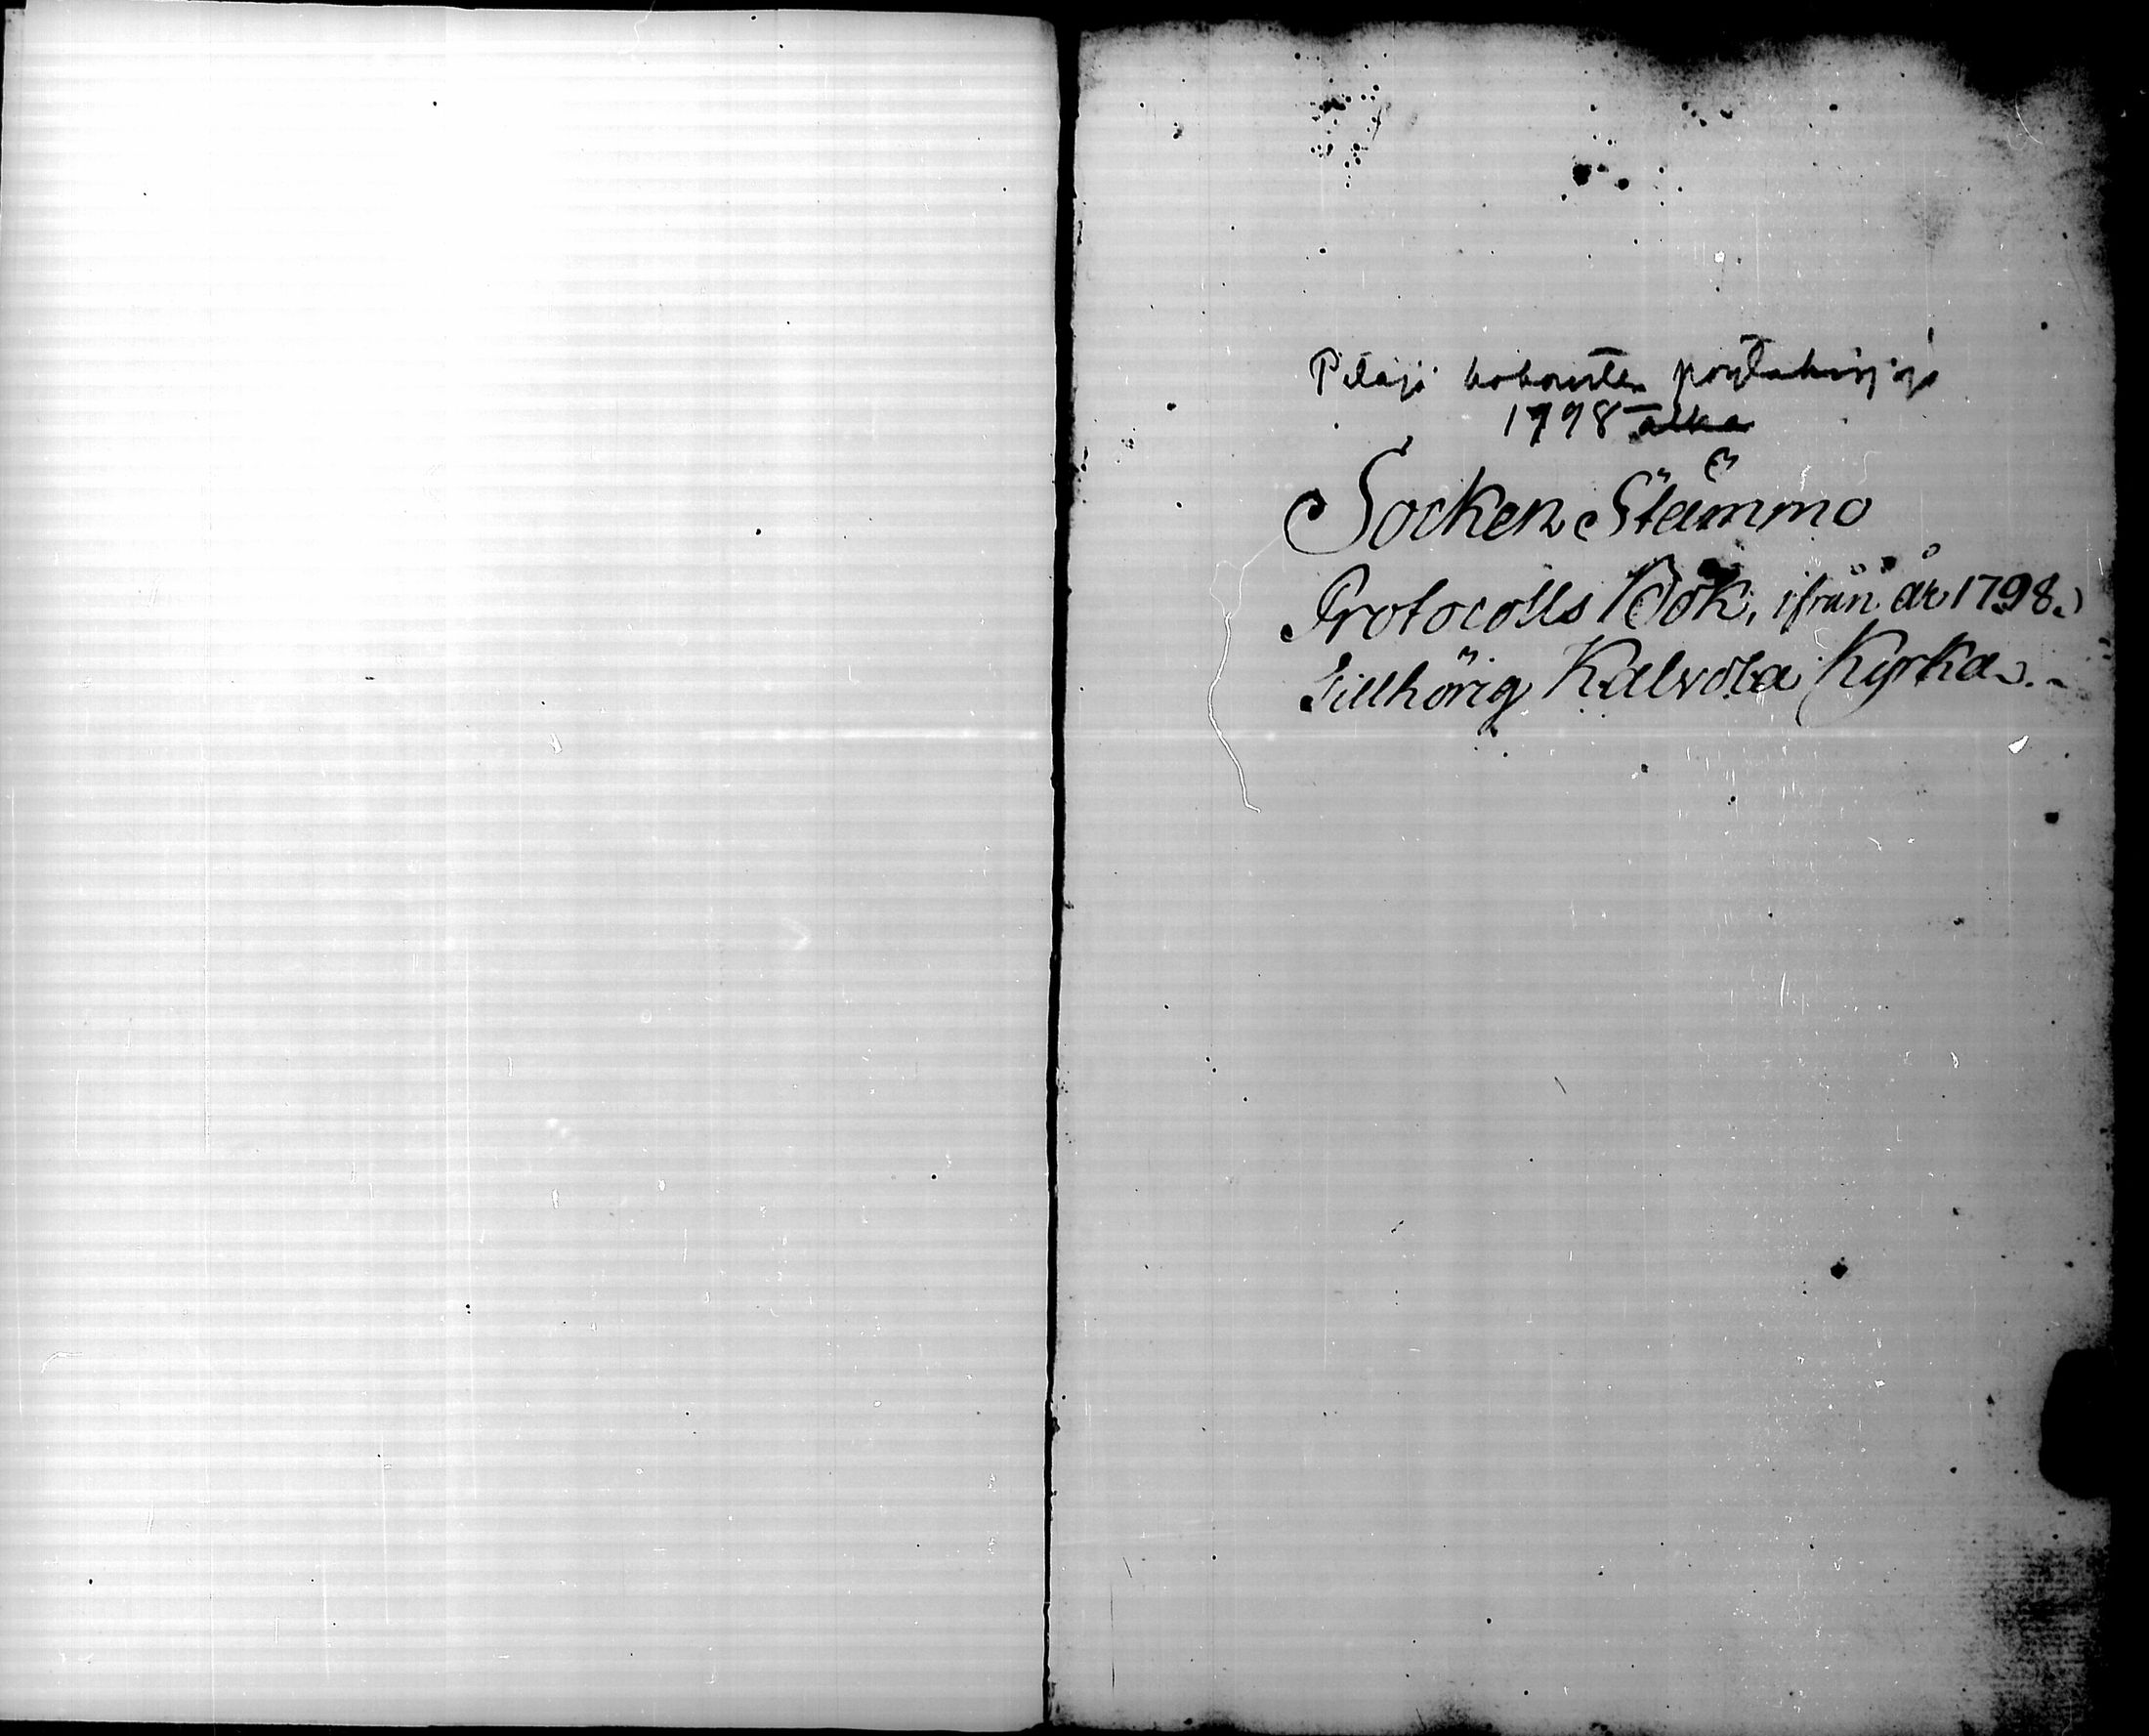 Pitäjä kokousten pöytäkirjoja
1798 alka
Socken Stämmo
Protocolls Bok, ifrån år 1798.
Tillhörig Kalvola Kyrka.